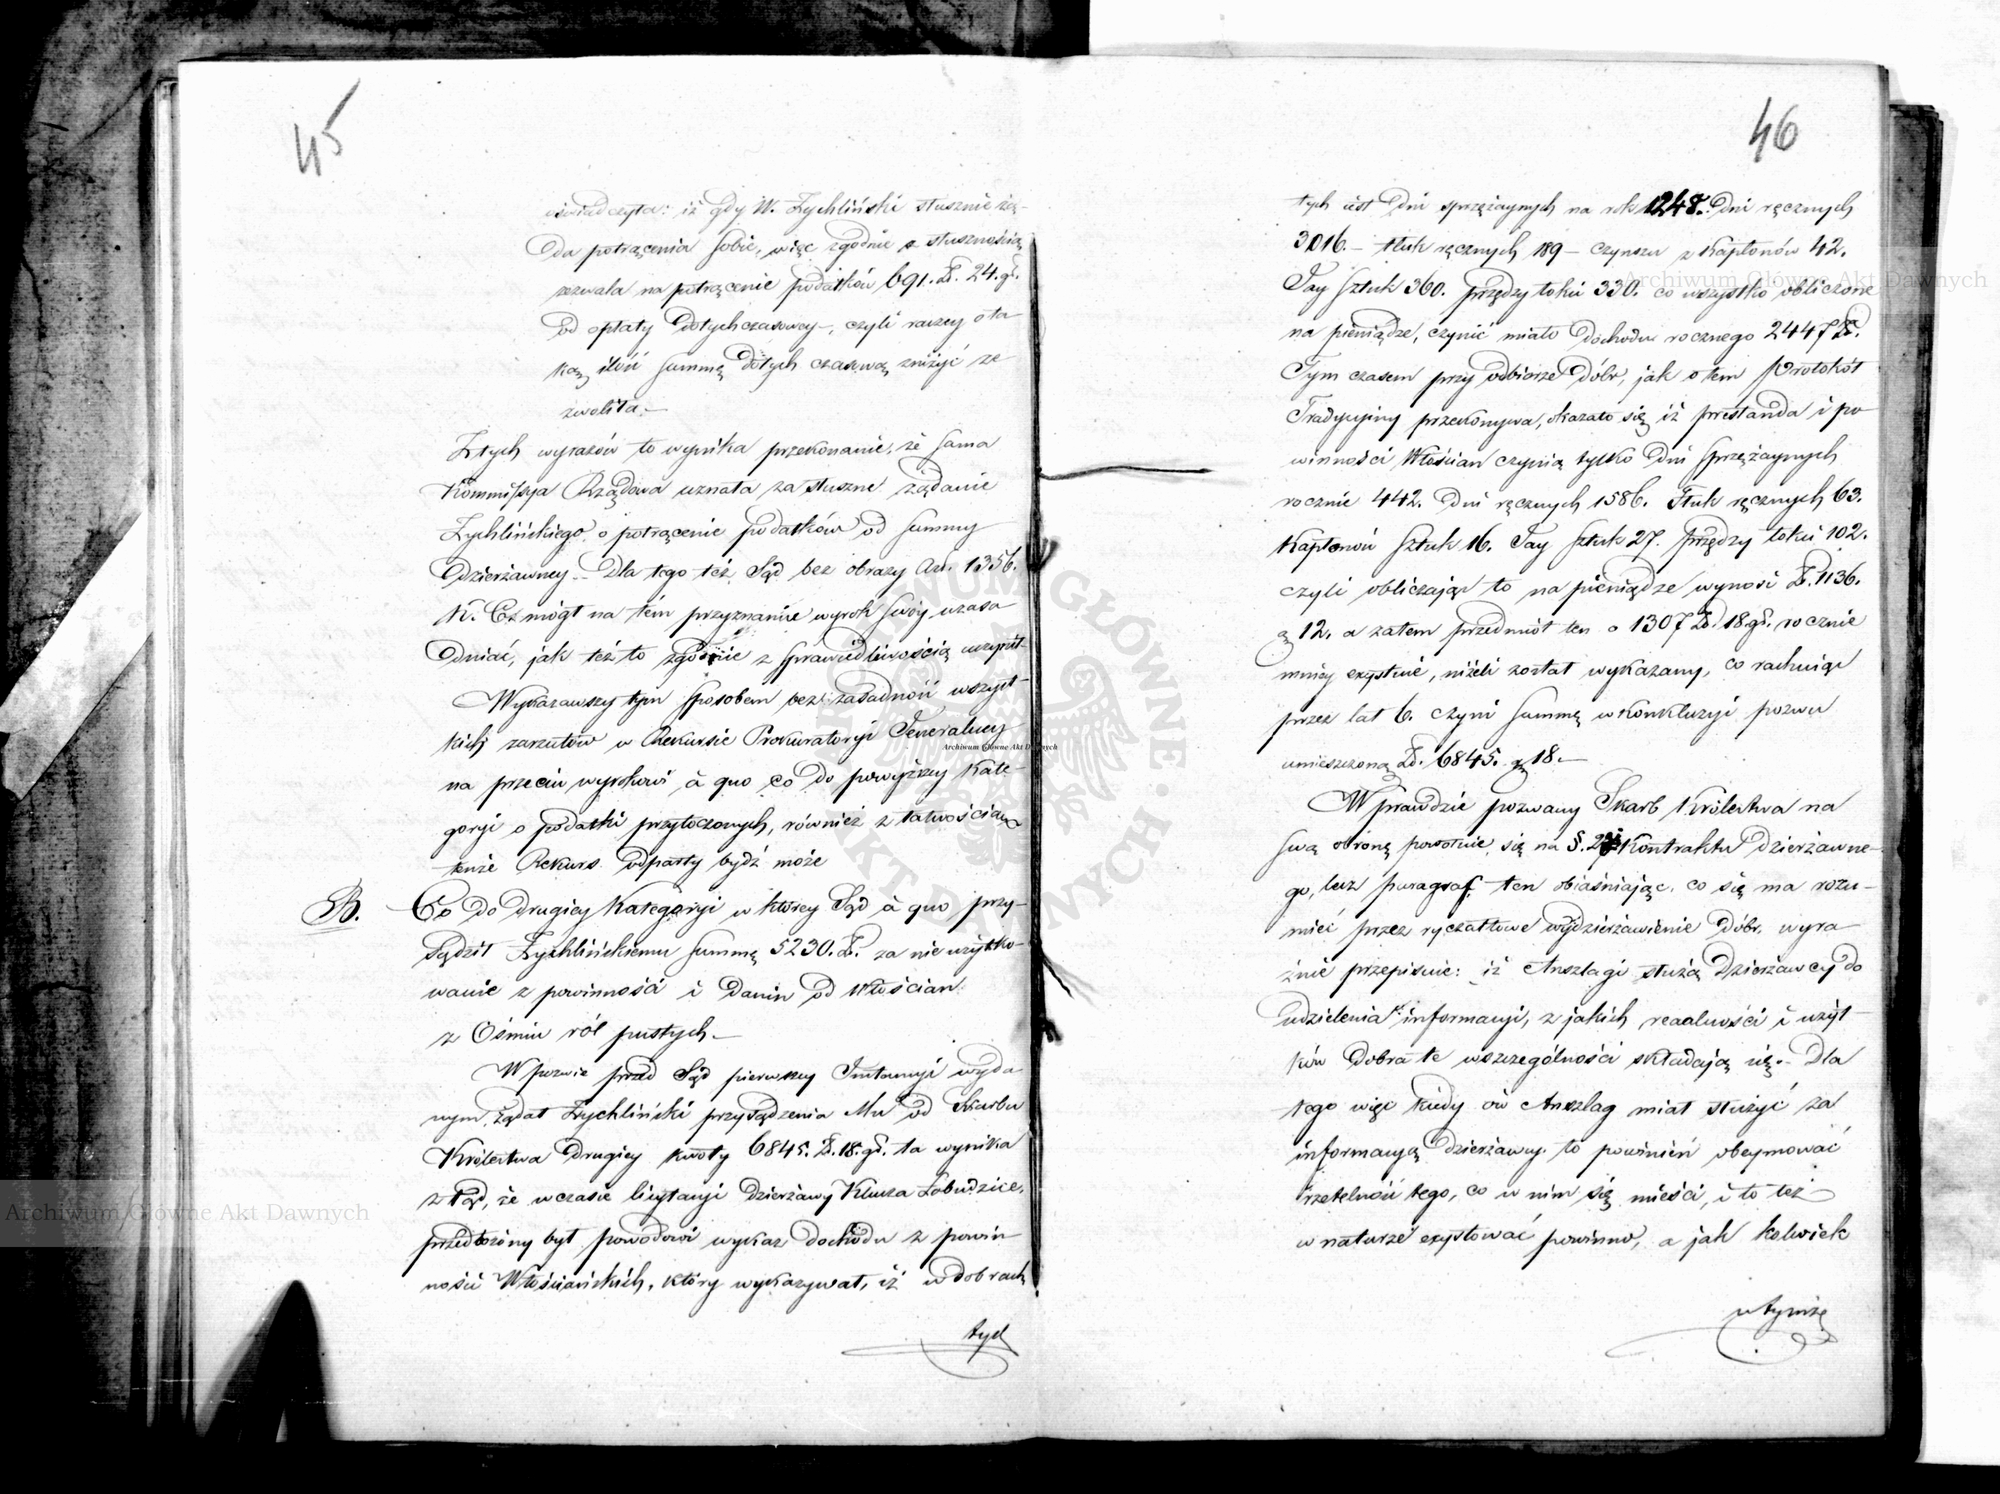 45
oświadczyła: iż gdy W. Żychliński słusznie żą-
da potrącenia sobie, więc zgodnie z słusznością
zezwala na potrącenie podatków 691. Zł. 24. gr.
od opłaty dotychczasowey, czyli raczey o ta
ką ilość summę dotychczasową zniżyć ze
zwoliła.—
Z tych wyrazów to wynika przekonanie, że sama
Kommissya Rządowa uznała za słuszne żądanie
Żychlińskiego o potrącenie podatków od summy
Dzierżawney.— Dla tego też Sąd bez obrazy Art. 1356.
K. C. mógł na tém przyznaniu wyrok swóy uzasa
dniać, jak też to zgodnie z sprawiedliwością uczynił.
Wykazawszy tym sposobem bezzasadność wszyst-
kich zarzutów w Rekursie Prokuratoryi Jeneralney
na przeciw wyrokowi à quo co do powyższey kate-
goryi o podatki przytoczonych, również z łatwością
tenże Rekurs odparty bydź może
B. Co do drugiey Kategoryi w którey Sąd à quo przy-
sądził Żychlińskiemu summę 5230. Zł. za nie użytko-
wanie z powinności i Danin od Włościan
z Ośmiu ról pustych.—
W pozwie przed Sąd pierwszey Instancyi wyda
nym, żądał Żychliński przysądzenia Mu od Skarbu
Królestwa drugiey kwoty 6845. Zł. 18. gr. ta wynika
z tąd, że w czasie licytacyi dzierżawy Klucza Łobudzice,
przedłożony był powodowi wykaz dochodu z powin
ności Włościańskich, który wykazywał, iż w dobrach
tych
46
tych jest Dni sprzężaynych na rok 1248. Dni ręcznych
3016.— tłuk ręcznych 189— czynszu z Kapłonów 42.
Jay sztuk 360. przędzy łokci 330. co wszystko obliczone
na pieniądze, czynić miało dochodu rocznego 2447 Zł.
Tym czasem przy odbiorze Dóbr, jak o tem Protokół
Tradycyiny przekonywa, okazało się iż prestanda i po
winności Włościan czynią tylko Dni sprzężaynych
rocznie 442. Dni ręcznych 1586. Tłuk ręcznych 63.
Kapłonów sztuk 16. Jay sztuk 27. przędzy łokci 102.
czyli obliczając to na pieniądze wynosi Zł. 1136.
gr 12. a zatem przedmiot ten o 1307 Zł. 18 gr. rocznie
mniey exystuie, niżeli został wykazany, co rachuiąc
przez lat 6. czyni summę w konkluzyi pozwu
umieszczoną Zł. 6845. gr 18.—
Wprawdzie pozwany Skarb Królestwa na
swą obronę powołuie się na §. 2 Kontraktu dzierżawne-
go, lecz paragraf ten obiaśniając, co się ma rozu-
mieć przez ryczałtowe wydzierżawienie Dóbr, wyra
źnie przepisuie: iż Anszlagi służą Dzierżawcy do
udzielenia informacyi, z jakich realności i użyt-
ków Dobra te w szczególności składają się.— Dla
tego więc kiedy ów Anszlag miał służyć za
informacyą Dzierżawcy to powinień obeymować
rzetelność tego, co w nim się mieści, i to też
w naturze exystować powinno, a jak kolwiek
w tymże
Archiwum Główne Akt Dawnych
Archiwum Główne Akt Dawnych
Archiwum Główne Akt Dawnych
ARCHIWUM GŁÓWNE AKT DAWNYCH